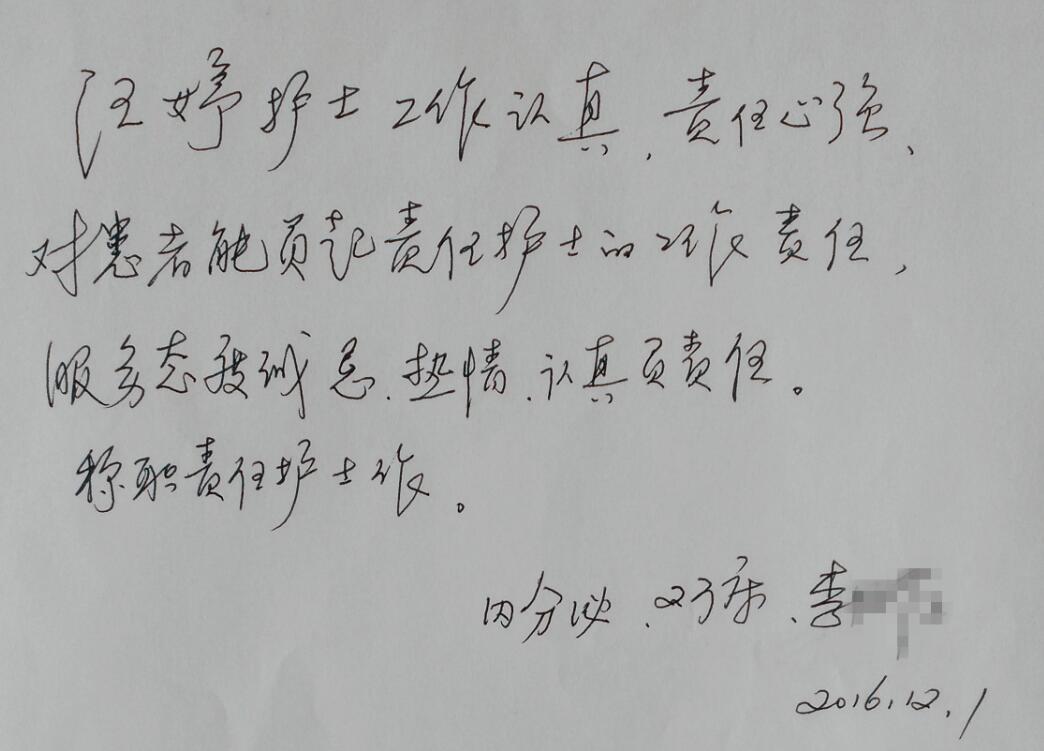 汪婷护士工作认真、责任心强、
对患者能负起责任护士的工作责任,
服务态度诚恳、热情、认真负责任。
称职责任护士作。
内分泌、23床、李
2016.12.1